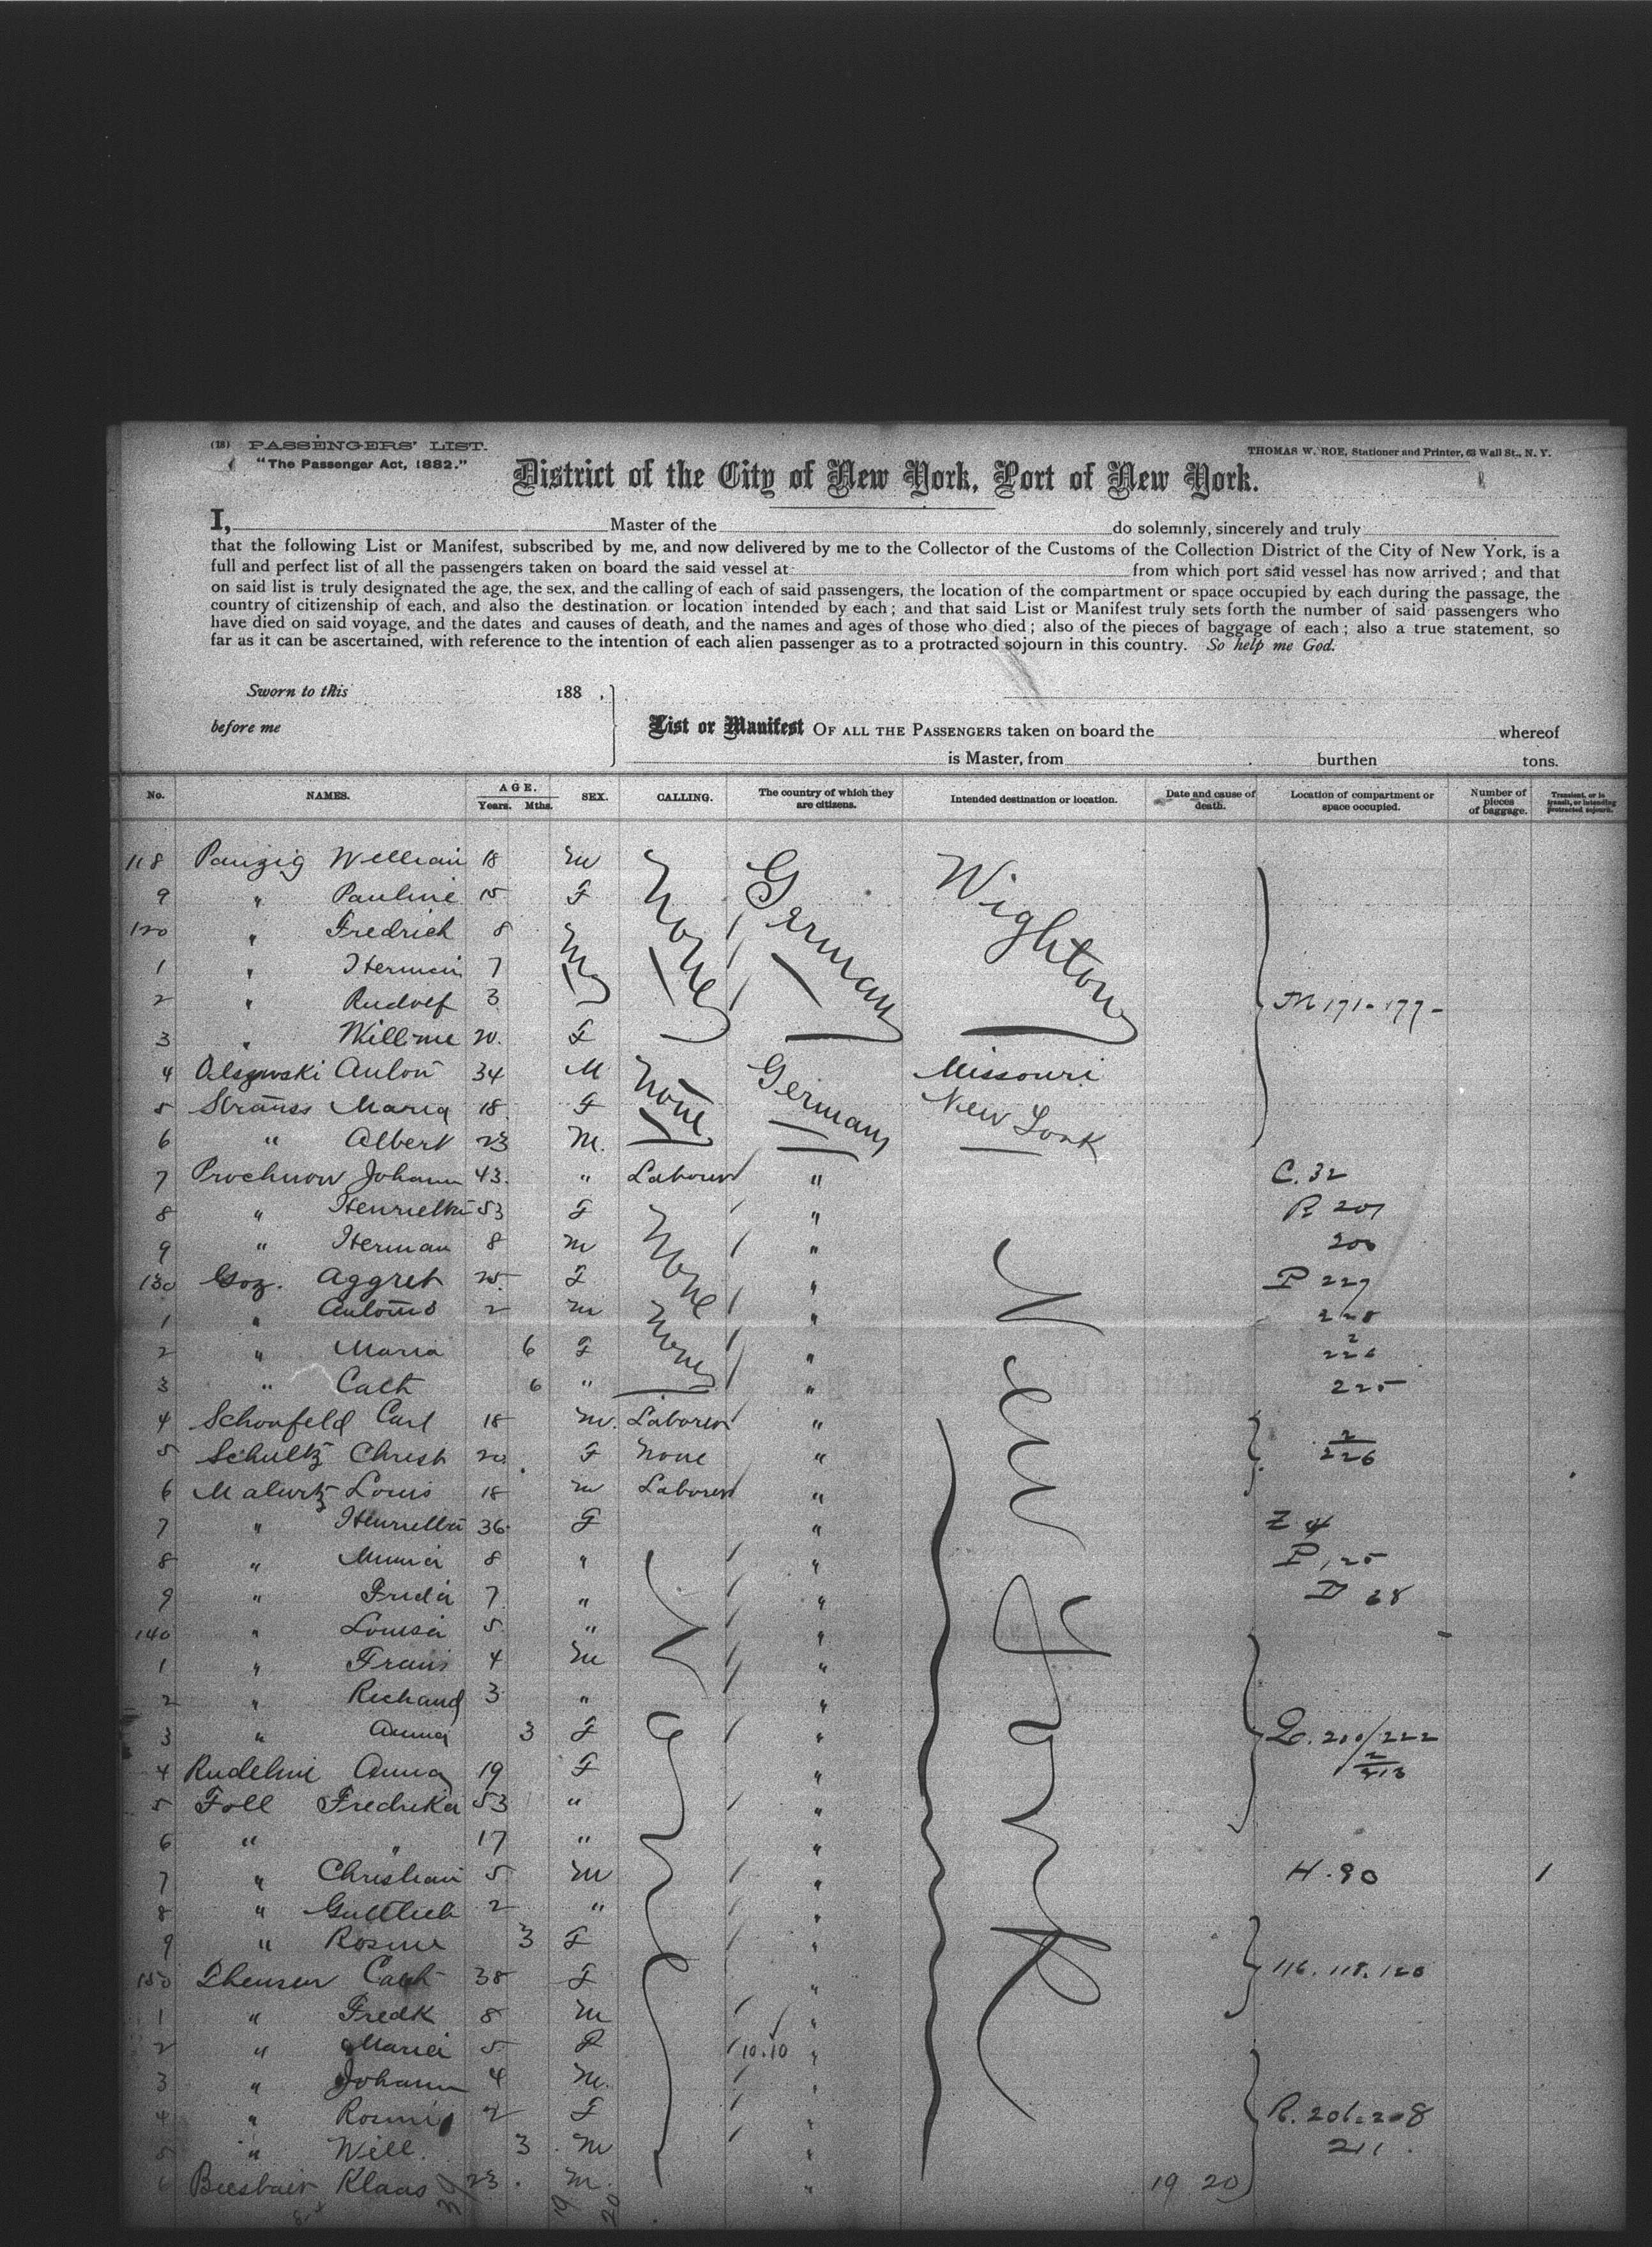 (18) PASSENGERS' LIST.
"The Passenger Act, 1882."
THOMAS W. ROE, Stationer and Printer, 63 Wall St., N. Y.
District of the City of New York, Port of New York.
I, Master of the do solemnly, sincerely and truly
that the following List or Manifest, subscribed by me, and now delivered by me to the Collector of the Customs of the Collection District of the City of New York, is a
full and perfect list of all the passengers taken on board the said vessel at from which port said vessel has now arrived; and that
on said list is truly designated the age, the sex, and the calling of each of said passengers, the location of the compartment or space occupied by each during the passage, the
country of citizenship of each, and also the destination or location intended by each; and that said List or Manifest truly sets forth the number of said passengers who
have died on said voyage, and the dates and causes of death, and the names and ages of those who died; also of the pieces of baggage of each; also a true statement, so
far as it can be ascertained, with reference to the intention of each alien passenger as to a protracted sojourn in this country. So help me God.
Sworn to this 188 ,
before me
List or Manifest OF ALL THE PASSENGERS taken on board the whereof
is Master, from burthen tons.
No. NAMES. AGE. Years. Mths. SEX. CALLING. The country of which they are citizens. Intended destination or location. Date and cause of death. Location of compartment or space occupied. Number of pieces of baggage. Transient, or in transit, or intending protracted sojourn.
118 Panzig William 18 M None German Wighton
9 " Pauline 15 F
120 " Fredrich 8 M
1 " Herman 7
2 " Rudolf 3 M 171-177-
3 " 20. F
4 Anton 34 M None German Missouri
5 Strauss Maria 18 F New York
6 " Albert 23 M.
7 Prochnow Johann 43. " Labourer " C. 32
8 " 53 F None " R 207
9 " Herman 8 M " 200
130 Goz. 25 F " P 227
1 " 2 M None "
2 " Maria 6 F "
3 " Cath 6 " " 225
4 Schonfeld Carl 18 M. Laborer " New York
5 Schultz Christ 20 F None " 2/226
6 Louis 18 M Laborer "
7 " 36 F " Z 4
8 " 8 " " P 125
9 " Frida 7. " " D 68
140 " Louisa 5 " "
1 " Frans 4 M "
2 " Richard 3 " "
3 " Anna 3 F "
4 Anna 19 F "
5 Foll Fredrika 53 " "
6 " " 17 " "
7 " Christian 5 M " H. 90 1
8 " Gottlieb 2 " "
9 " Rosine 3 F "
150 Cath 38 F " 116. 118. 120
1 " Fredk 8 M "
2 " Maria 5 F 10.10 "
3 " Johann 4 M. "
4 " 2 F " R. 206-208
5 " Will. 3 M " 211.
6 Klaas 23. M. " 19 20
19 20